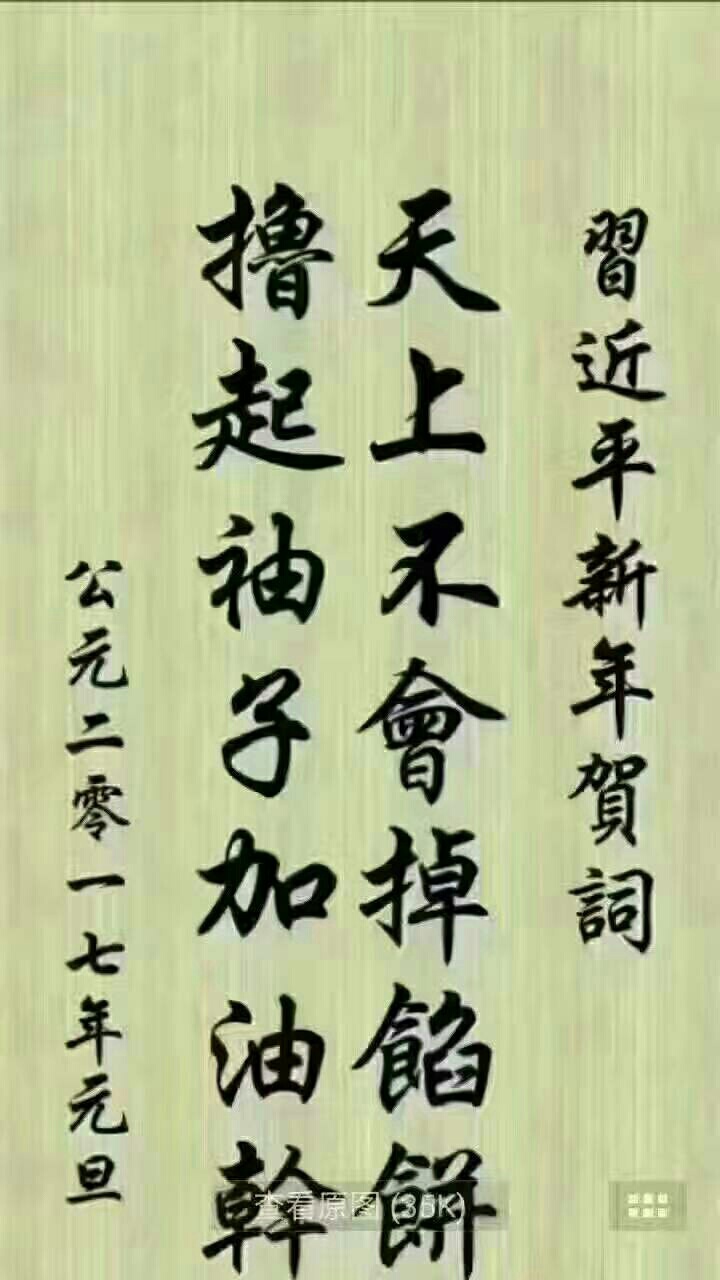 習近平新年賀詞
天上不會掉餡餅
擼起袖子加油幹
公元二零一七年元旦
查看原图 (35K)